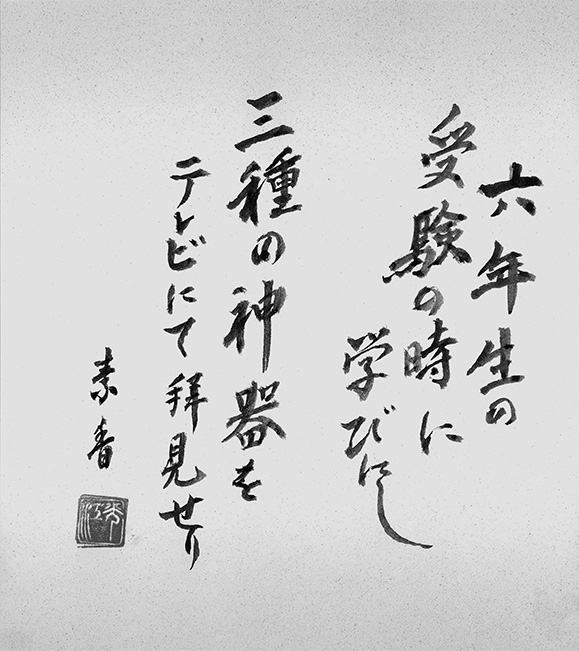 六年生の
受験の時に
学びにし
三種の神器を
テレビにて拝見せり
素香